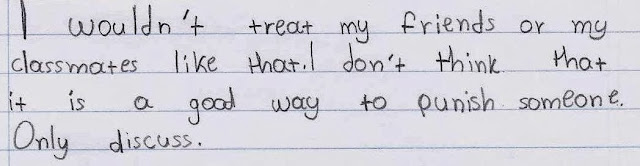 I wouldn't treat my friends or my
classmates like that.I don't think that
it is a good way to punish someone.
Only discuss.